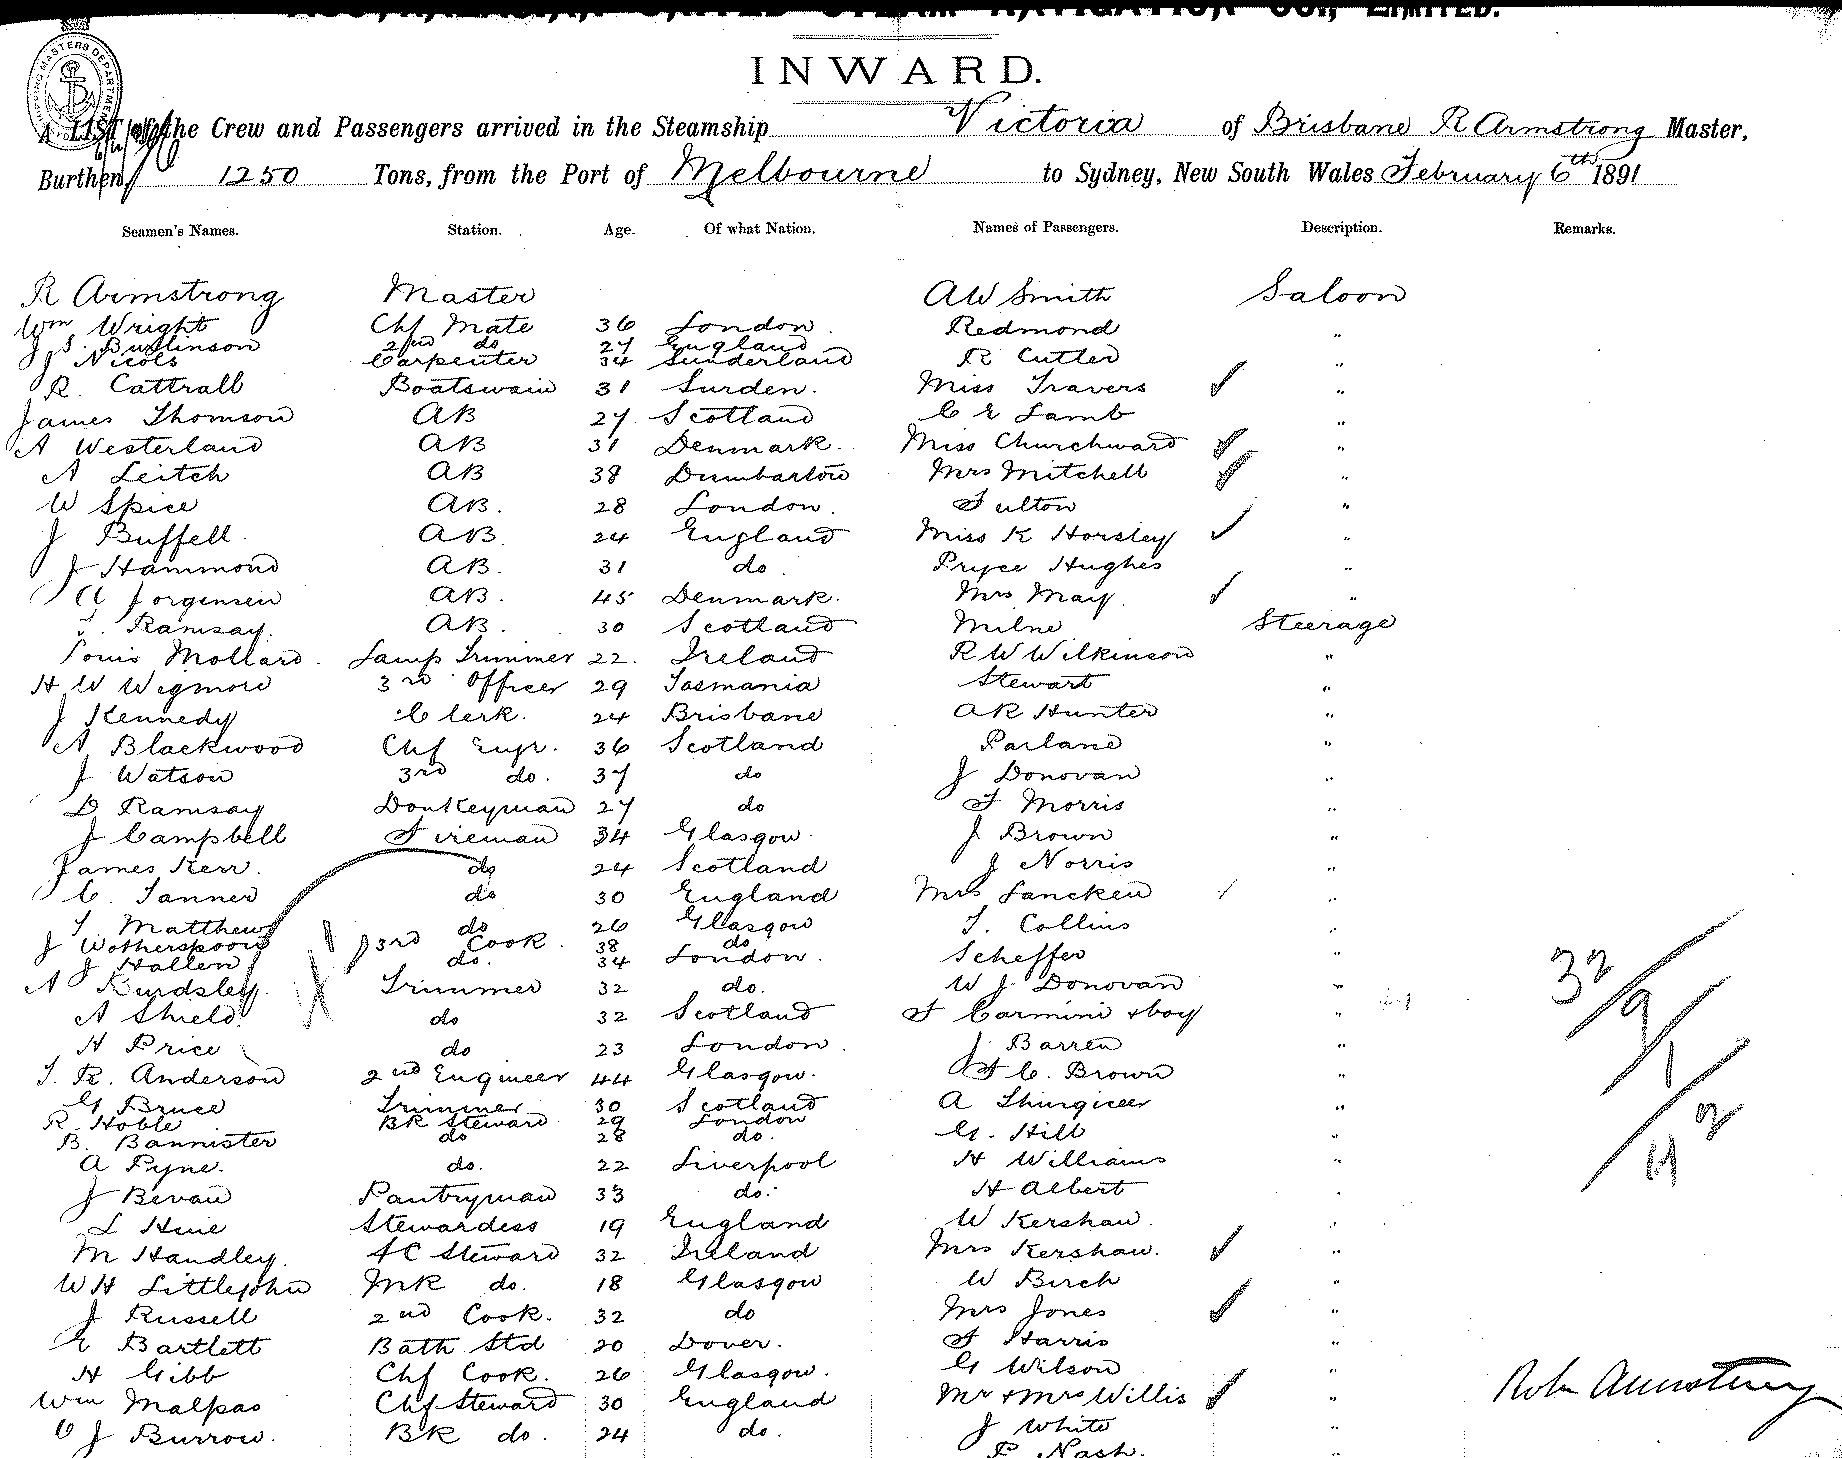 AUSTRALASIAN UNITED STEAM NAVIGATION CO., LIMITED.
INWARD.
A LIST of the Crew and Passengers arrived in the Steamship Victoria of Brisbane R Armstrong Master,
Burthen 1250 Tons, from the Port of Melbourne to Sydney, New South Wales February 6th 1891
Seamen's Names. Station. Age. Of what Nation. Names of Passengers. Description. Remarks.
R Armstrong Master AW Smith Saloon
Wm Wright Chf Mate 36 London. Redmond "
J S. Burlinson 2nd do 27 England
J Nicols Carpenter 34 Sunderland R Cutler "
R. Cattrall Boatswain 31 Surden. Miss Travers "
James Thomson AB 27 Scotland C E Lamb "
A Westerland AB 31 Denmark. Miss Churchward "
A Leitch AB 38 Dumbarton Mrs Mitchell "
W Spice AB. 28 London. Fulton "
J Buffell. AB 24 England Miss K Horsley "
J Hammond AB. 31 do. Pryce Hughes "
A Jorgensen AB. 45 Denmark. Mrs May. "
Ramsay. AB. 30 Scotland Milne Steerage
Louis Mollard. Lamp Trimmer 22. Ireland R W Wilkinson "
H W Wigmore 3rd Officer 29 Tasmania Stewart "
J Kennedy Clerk. 24 Brisbane AR Hunter "
A Blackwood Chf Engr. 36 Scotland Parlane "
J Watson 3rd do. 37 do J Donovan "
D Ramsay Donkeyman 27 do F Morris "
J Campbell Fireman 34 Glasgow. J Brown "
James Kerr. do 24 Scotland J Norris "
C. Tanner do 30 England Mrs Lancken "
T. Matthews do 26 Glasgow T. Collins "
J Wotherspoon 3rd Cook. 38 do
J Hallen do. 34 London. Scheffer "
A Burdsley. Trimmer 32 do. W J Donovan "
A Shield. do 32 Scotland F Carmini + boy "
H Price do 23 London. J Barren "
T. R. Anderson 2nd Engineer 44 Glasgow. F C. Brown "
G Bruce Trimmer 30 Scotland A "
R. Hoble BK Steward 29 London
B. Bannister do 28 do. G. Hill "
A Pyne. do. 22 Liverpool H Williams "
J Bevan Pantryman 33 do. H Albert "
L Hue Stewardess 19 England W Kershaw. "
M Handley. FC Steward 32 Ireland Mrs Kershaw. "
W H Littlejohn MK do. 18 Glasgow W Birch "
J Russell 2nd Cook. 32 do Mrs Jones "
E Bartlett Bath Std 20 Dover. F Harris "
H Gibb Chf Cook. 26 Glasgow. G Wilson "
Wm Malpas Chf Steward 30 England Mr + Mrs Willis "
C J Burrow. BK do. 24 do. J White "
P Nash. "
32/9/1/2
Robt Armstrong